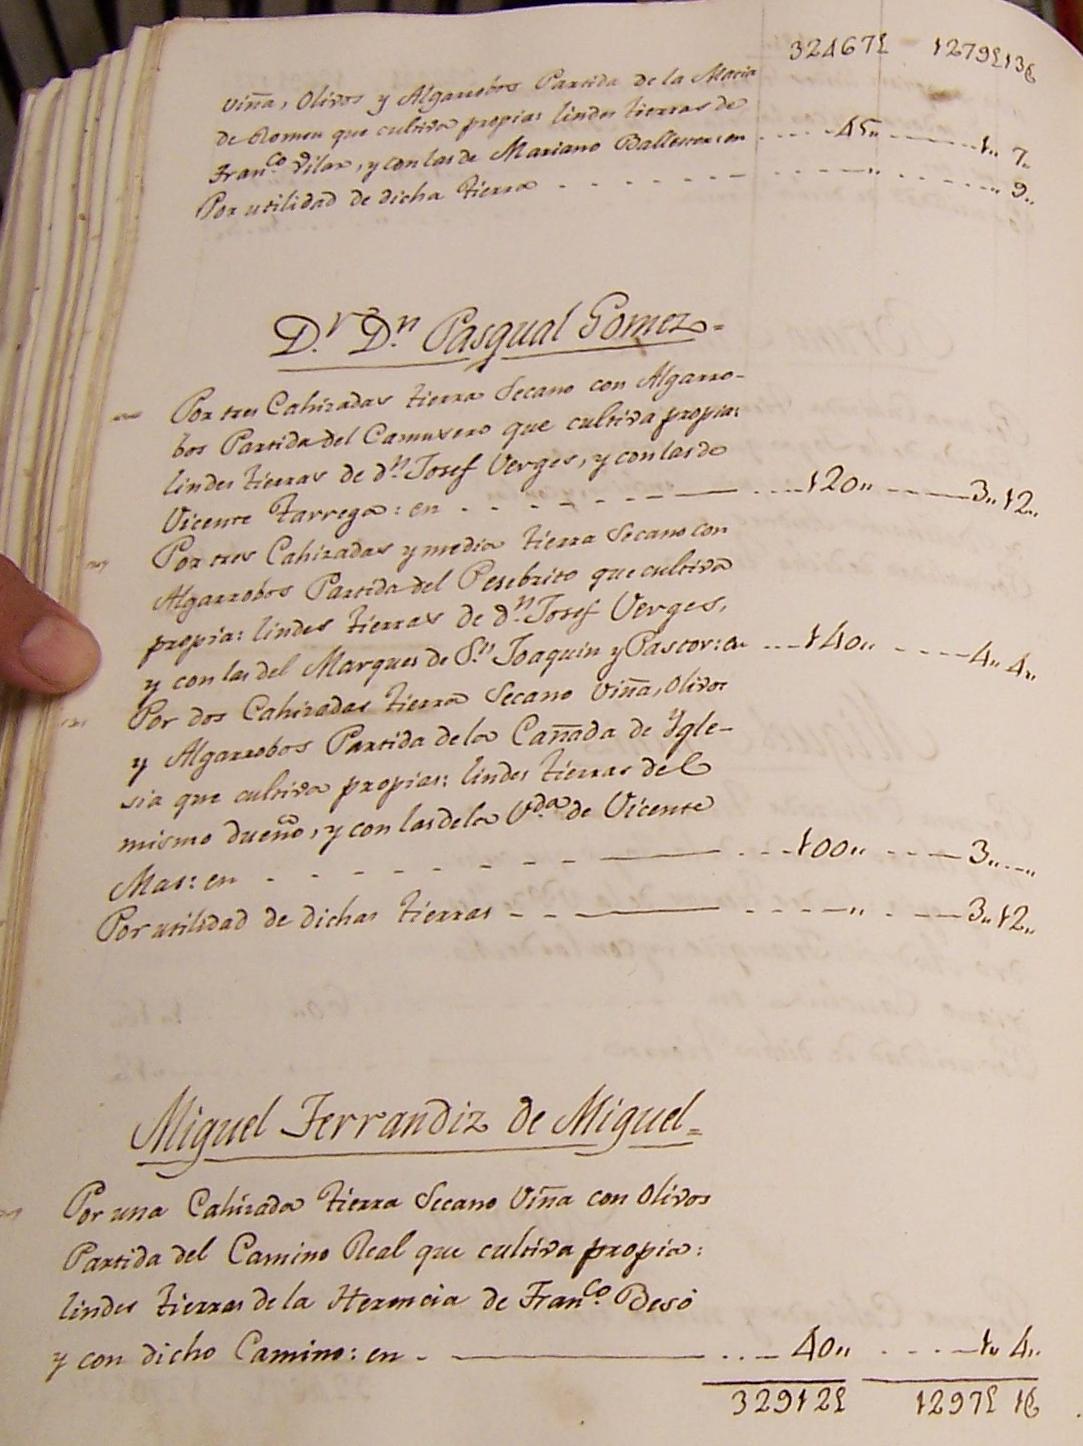 32467£ 1279£13ƨ
viña, Olivos y Algarrobos Partida de la Macia
de Romeu que cultiva propia: lindes tierras de
Fran.co Vilar, y con las de Mariano Ballester: en ---- 45,, ---- 1,, 7,,
Por utilidad de dicha tierra - - - - - - ,, - - - - ,, 9,,
D.r D.n Pasqual Gomez=
Por tres Cahizadas tierra Secano con Algarro-
bos Partida del Camusero que cultiva propia:
lindes tierras de d.n Josef Verges, y con las de
Vicente Tarrega: en - - - - - - 120,, ---- 3,, 12,,
Por tres Cahizadas y media tierra Secano con
Algarrobos Partida del Pesebrito que cultiva
propia: lindes tierras de d.n Josef Verges,
y con las del Marques de S.n Joaquin y Pastor: en ---- 140,, ---- 4,, 4,,
Por dos Cahizadas tierra Secano viña, Olivos
y Algarrobos Partida de la Cañada de Ygle-
sia que cultiva propias: lindes tierras del
mismo dueño, y con las de la V.da de Vicente
Mas: en - - - - - - 100,, ---- 3,, --,,
Por utilidad de dichas tierras - - - - - - ,, - - - - 3,, 12,,
Miguel Ferrandiz de Miguel=
Por una Cahizada tierra Secano Viña con Olivos
Partida del Camino Real que cultiva propia:
lindes tierras de la Herencia de Fran.co Besó
y con dicho Camino: en - ---- 40,, ---- 1,, 4,,
32912£ 1297£ 1ƨ